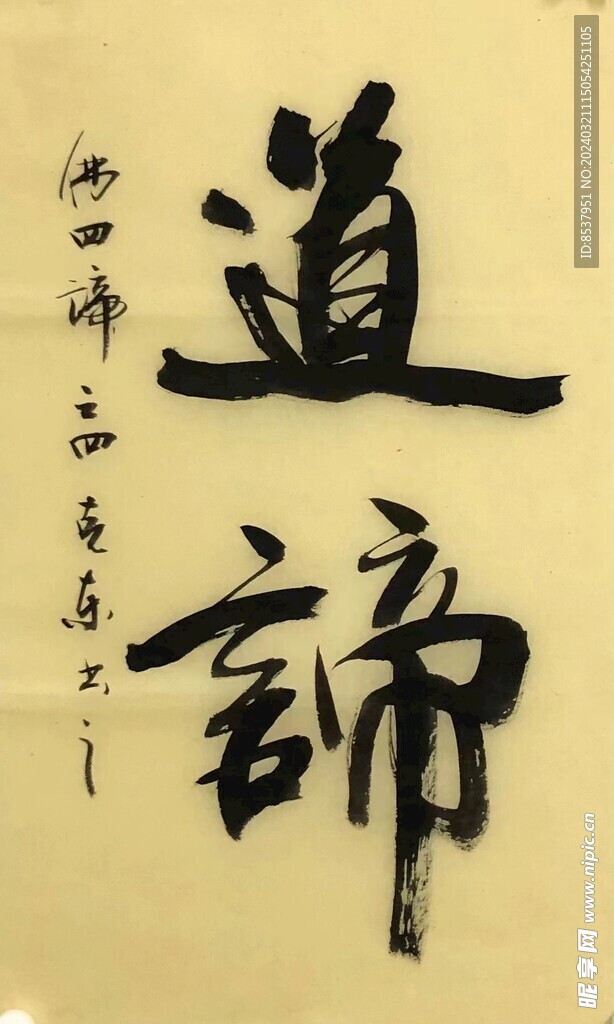 道諦
佛四諦之四克东书之
ID:8537951 NO:20240321115054251105
昵享网 www.nipic.cn